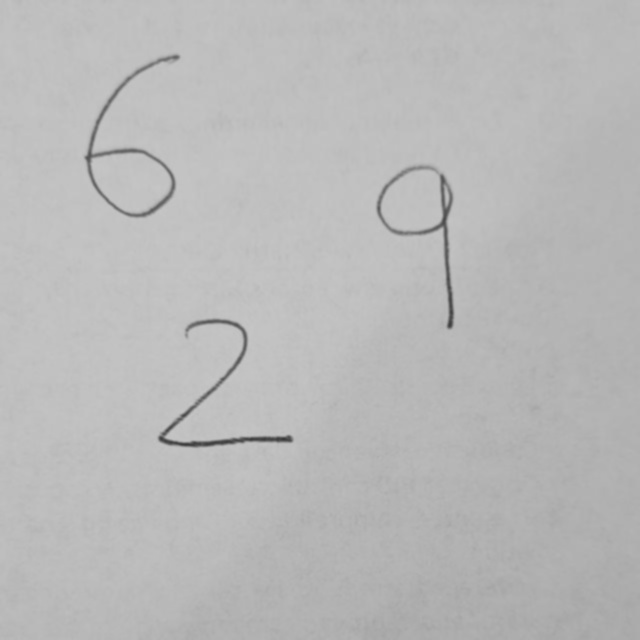 6
9
2